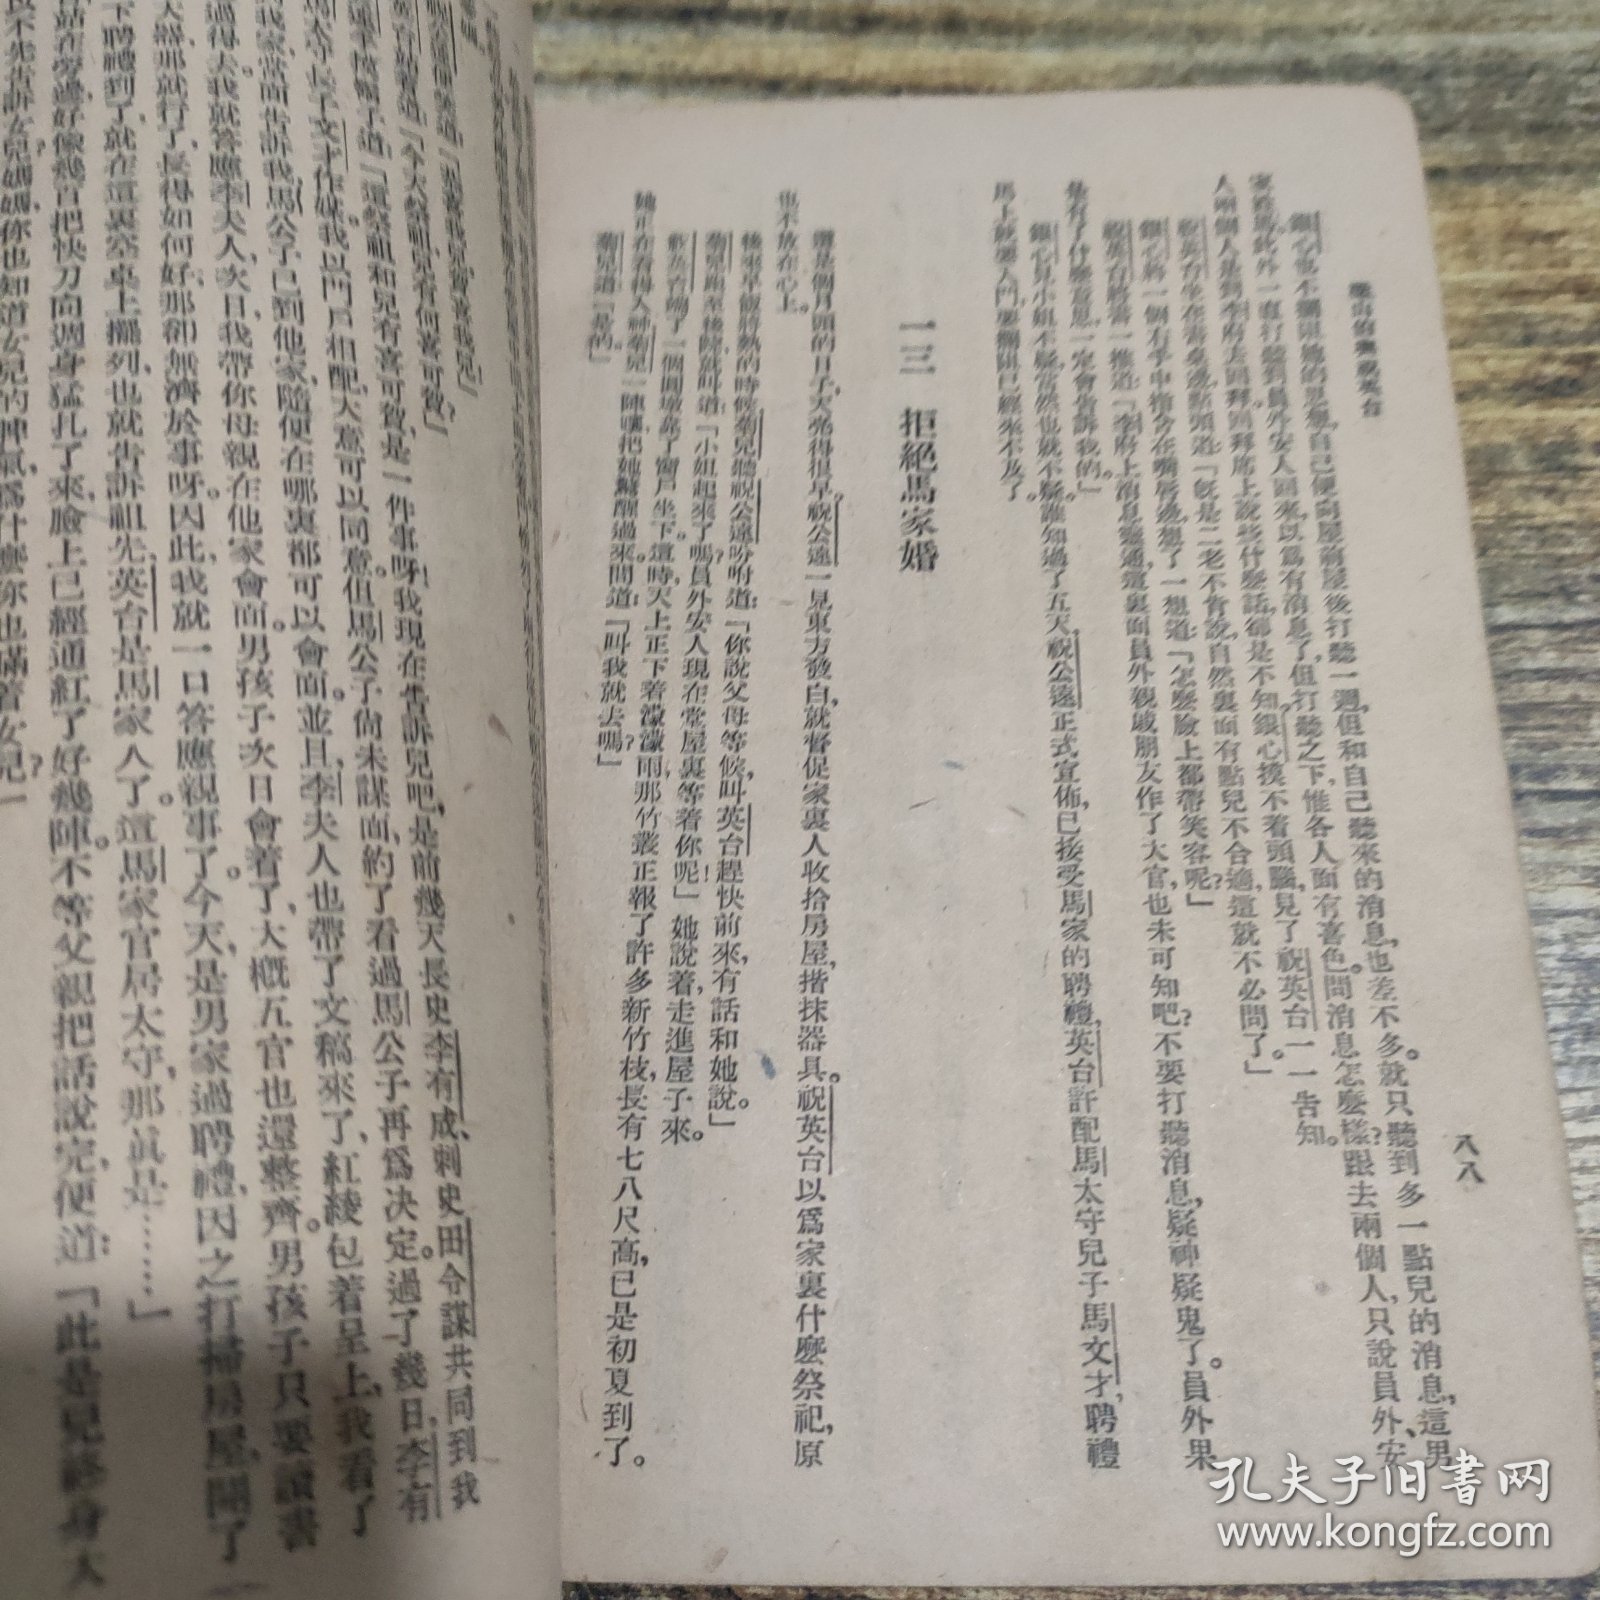 梁山伯與祝英台
八八
銀心也不攔阻她的思想，自己便向屋前屋後打聽一週，但和自己聽來的消息，也差不多。就只聽到多一點兒的消息，這男
家姓馬。此外一直打聽到員外安人回來，以爲有消息了，但打聽之下，惟各人面有喜色。問消息怎麼樣？跟去兩個人，只說員外、安
人兩個人是到李府去回拜，回拜席上說些什麼話，却是不知。銀心摸不着頭腦，見了祝英台一一告知。
祝英台坐在書桌邊，點頭道：「旣是二老不肯說，自然裏面有點兒不合適，這就不必問了。」
銀心將一個右手中指含在嘴唇邊，想了一想道：「怎麼臉上都帶笑容呢？」
祝英台將書一推道：「李府上消息靈通，這裏面員外親戚朋友作了大官，也未可知吧？不要打聽消息，疑神疑鬼了。員外果
是有了什麼意思，一定會告訴我的。」
銀心見小姐不疑，當然也就不疑。誰知過了五天，祝公遠正式宣佈，已接受馬家的聘禮，英台許配馬太守兒子馬文才，聘禮
馬上就要入門，要攔阻已經來不及了。
一三　拒絕馬家婚
這是個月頭的日子，天亮得很早。祝公遠一見東方發白，就督促家裏人收拾房屋，揩抹器具。祝英台以爲家裏什麼祭祀，原
也不放在心上。
後來早飯將熱的時候，菊兒聽祝公遠吩咐道：「你說父母等候，叫英台趕快前來，有話和她說。」
菊兒跑至後院，就叫道：「小姐起來了嗎？員外安人現在堂屋裏等着你呢！」她說着，走進屋子來。
祝英台端了一個圓墩，靠了窗戶坐下。這時，天上正下着濛濛雨，那竹叢正報了許多新竹枝，長有七八尺高，已是初夏到了。
她正在看得入神，菊兒一陣嚷，把她驚醒過來。問道：「叫我就去嗎？」
菊兒道：「是的。」
道：「今天祭祖，兒有何喜可賀？」
道：「這祭祖和兒有喜可賀，是一件事呀！我現在告訴兒吧，是前幾天長史李有成、刺史田令謀共同到我
馬太守長子文才作媒。我以門戶相配，大意可以同意。但馬公子尙未謀面，約了看過馬公子再爲決定。過了幾日，李有
我家，當面告訴我，馬公子已到他家，隨便在哪裏都可以會面。並且，李夫人也帶了文稿來了，紅綾包着呈上。我看了
得去，我就答應李夫人，次日我帶你母親在他家會面。男孩子次日會着了，大概五官也還整齊。男孩子只要讀書
那就行了，長得如何好，那卻無濟於事呀。因此，我就一口答應親事了。今天，是男家過聘禮，因之打掃房屋，開了
下聘禮到了，就在這裏空桌上擺列，也就告訴祖先，英台是馬家人了。這馬家官居太守，那眞是……」
站在旁邊，好像幾官把快刀向週身猛扎了來，臉上已經通紅了好幾陣。不等父親把話說完，便道：「此是兒終身大
不先告訴女兒？媽媽，你也知道女兒的脾氣，爲什麼你也瞞着女兒？」
孔夫子旧书网
www.kongfz.com